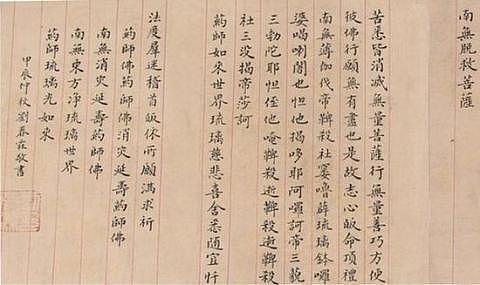 南無脱救菩薩
苦悉皆消滅無量菩薩行無量善巧方便
彼佛行願無有盡也是故志心皈命頂禮
南無薄伽伐帝鞞殺社窶嚕薜琉璃鉢囉
婆喝喇闍也怛他揭哆耶阿囉訶帝三藐
三勃陀耶怛侄他唵鞞殺逝鞞殺逝鞞殺
社三没揭帝莎訶
葯師如來世界琉璃慈悲喜舍悉随宜忏
法度羣迷稽首皈依所願滿求祈
葯師佛葯師佛消灾延壽葯師佛
南無消灾延壽葯師佛
南無東方净琉璃世界
葯師琉璃光如來
甲辰仲秋劉春霖敬書